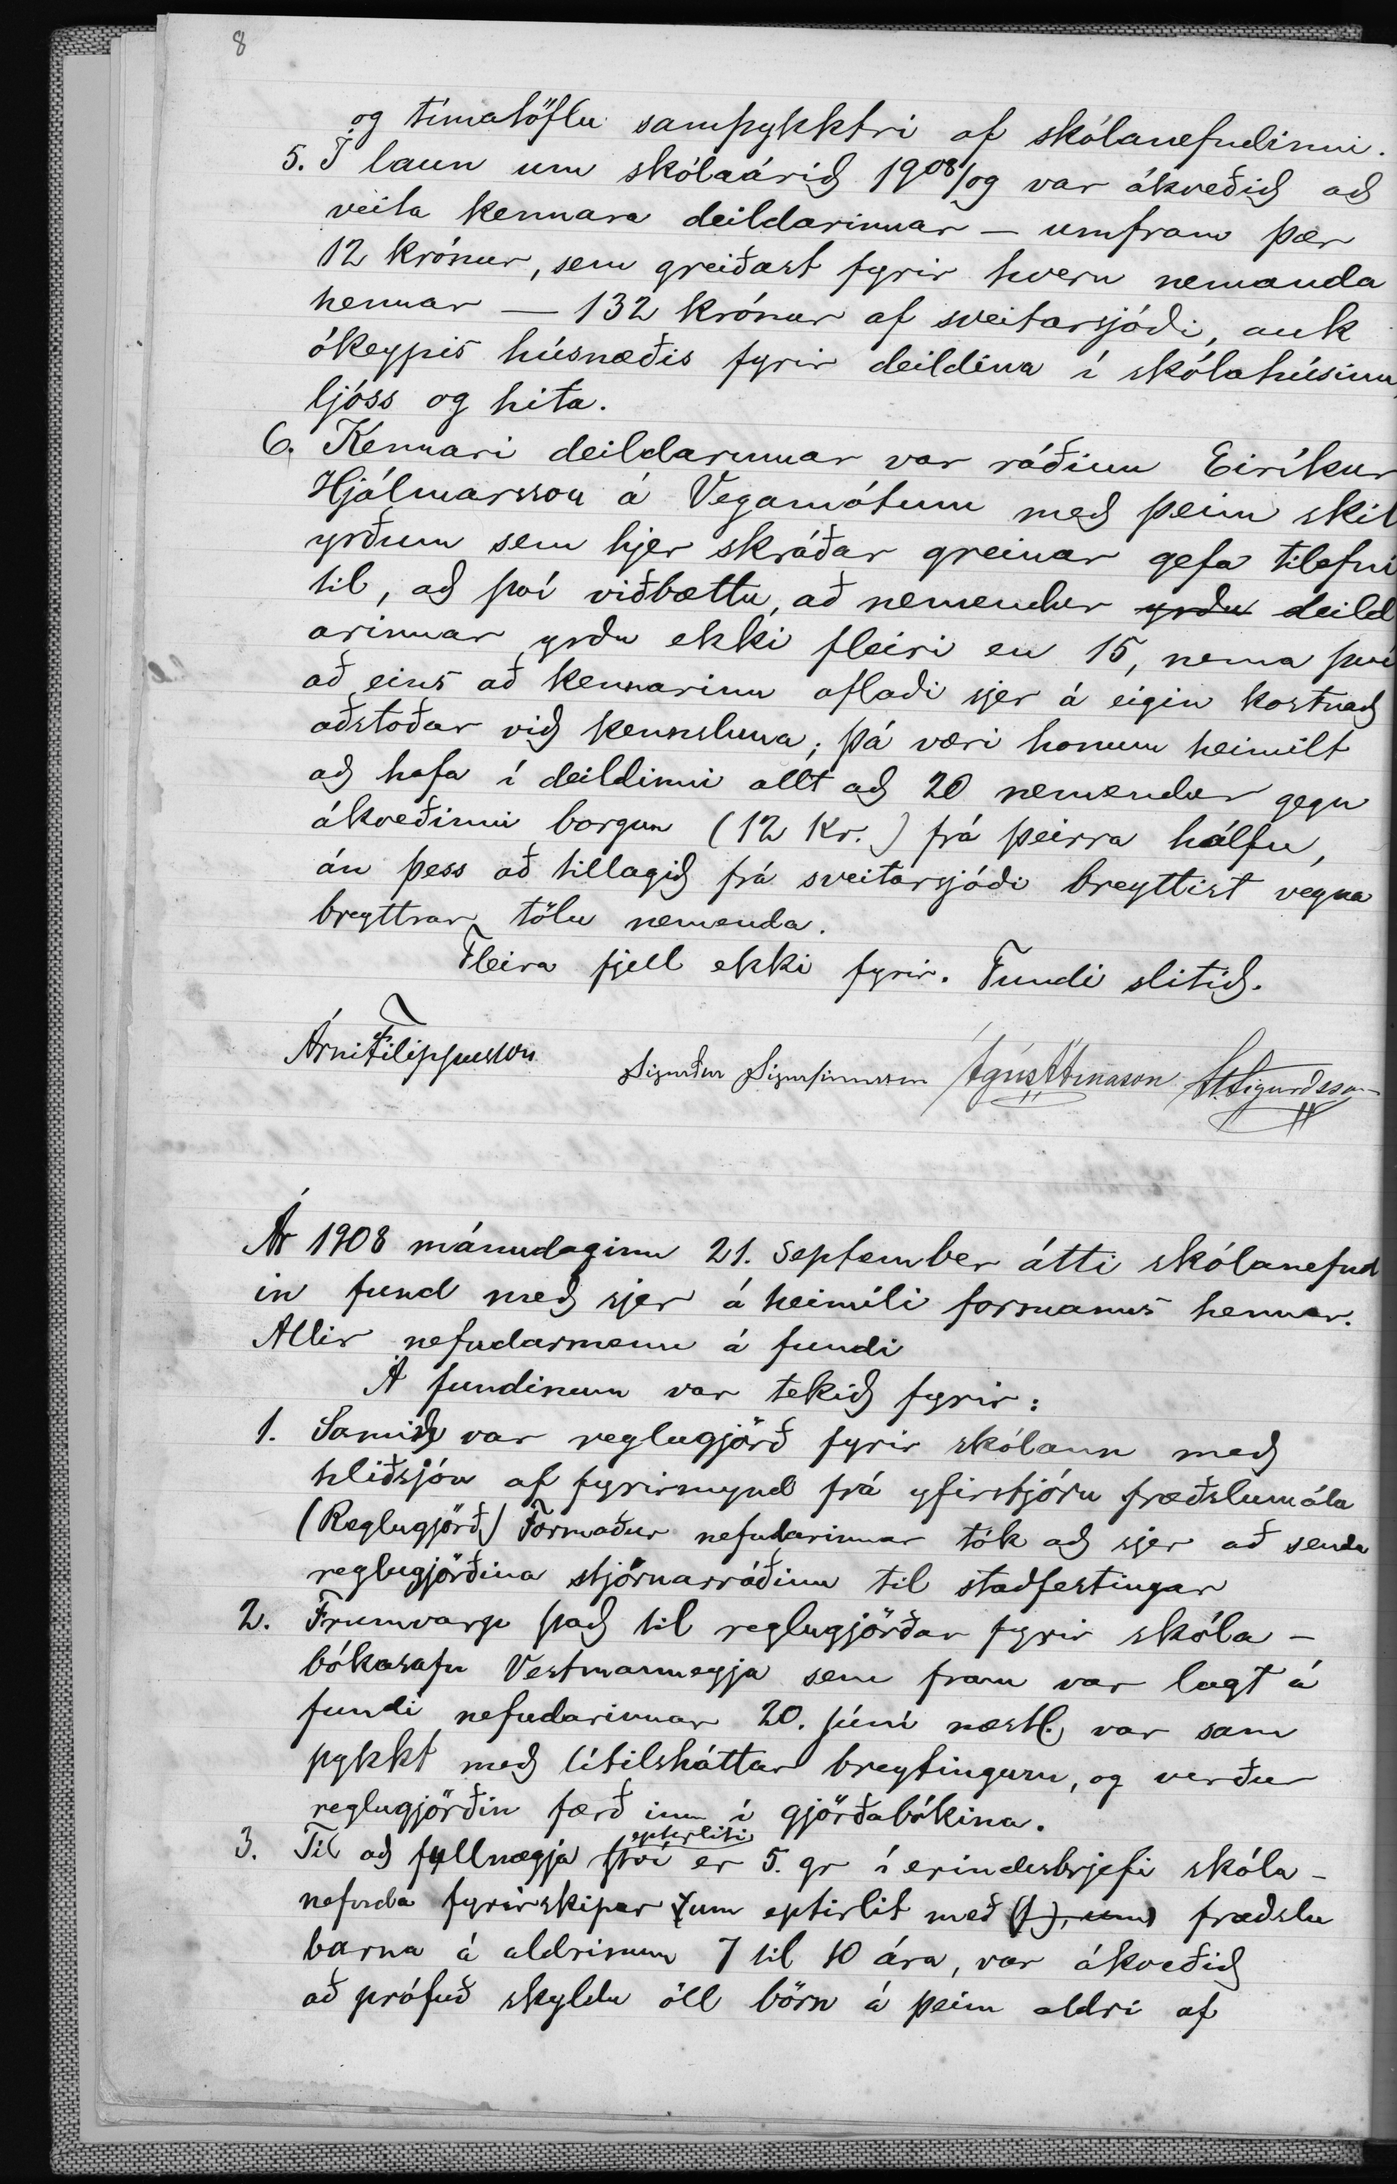 8
og tímatöflu samþykktri af skólanefndinni.
5. Í laun um skólaárið 1908/09 var ákveðið að
veita kennara deildarinnar – umfram þær
12 krónur, sem greiðast fyrir hvern nemanda
hennar – 132 krónur af sveitarsjóði, auk
ókeypis húsnæðis fyrir deildina í skólahúsinu,
ljóss og hita.
6. Kennari deildarinnar var ráðinn Eiríkur
Hjálmarsson á Vegamótum með þeim skil
yrðum sem hjer skráðar greinar gefa tilefni
til, að því viðbættu, að nemendur yrðu deild
arinnar yrðu ekki fleiri en 15, nema því
að eins að kennarinn aflaði sjer á eigin kostnað
aðstoðar við kennsluna; þá væri honum heimilt
að hafa í deildinni allt að 20 nemendur gegn
ákveðinni borgun (12 Kr.) frá þeirra hálfu,
án þess að tillagið frá sveitarsjóði breyttist vegna
breyttrar tölu nemenda.
Fleira fjell ekki fyrir. Fundi slitið.
Árni Filippusson Sigurður Sigurfinnsson Ágúst Árnason St. Sigurðsson
Ár 1908 mánudaginn 21. september átti skólanefnd
in fund með sjer á heimili formanns hennar.
Allir nefndarmenn á fundi
Á fundinum var tekið fyrir:
1. Samið var reglugjörð fyrir skólann með
hliðsjón af fyrirmynd frá yfirstjórn fræðslumála
(Reglugjörð) Formaður nefndarinnar tók að sjer að senda
reglugjörðina stjórnarráðinu til staðfestingar
2. Frumvarp það til reglugjörðar fyrir skóla-
bókasafn Vestmannaeyja sem fram var lagt á
fundi nefndarinnar 20. júní næstl. var sam
þykkt með lítilsháttar breytingum, og verður
reglugjörðin færð inn í gjörðabókina.
3. Til að fullnægja því eptirliti er 5. gr í erindisbrjefi skóla-
nefnda fyrirskipar um eptirlit með fræðslu
barna á aldrinum 7 til 10 ára, var ákveðið
að prófuð skyldu öll börn á þeim aldri af